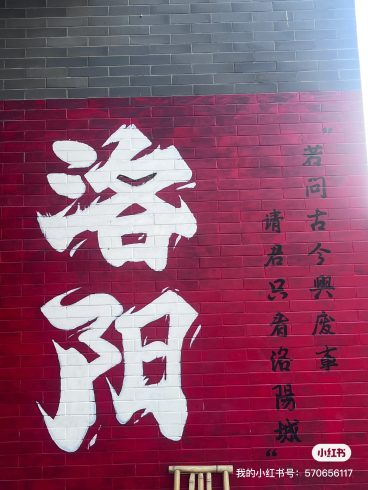 洛阳
"若问古今興废事
请君只看洛陽城"
小红书
我的小红书号：570656117